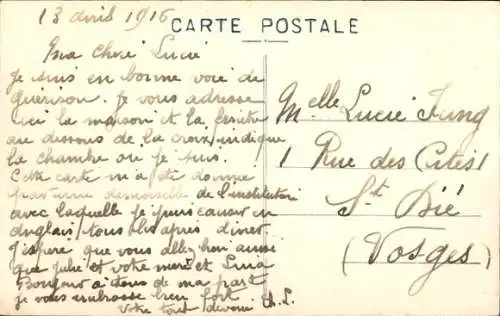 13 avril 1916
CARTE POSTALE
Ma chere Lucie
Je suis en bonne voie de
guérison. Je vous adresse
ici la maison et la fenetre
au dessous de la croix indique
la chambre ou je suis.
Cette carte m'a été donnée
par une demoiselle de l'institutrice
avec laquelle je puis causer en
anglais tous les après diner.
J'espère que vous allez bien ainsi
que Julie et votre mere et
Bonjour a tous de ma part
je vous embrasse bien fort
Votre tout dévoué Ch. L.
Melle Lucie Jung
1 Rue des Cités 1
St. Dié
(Vosges)